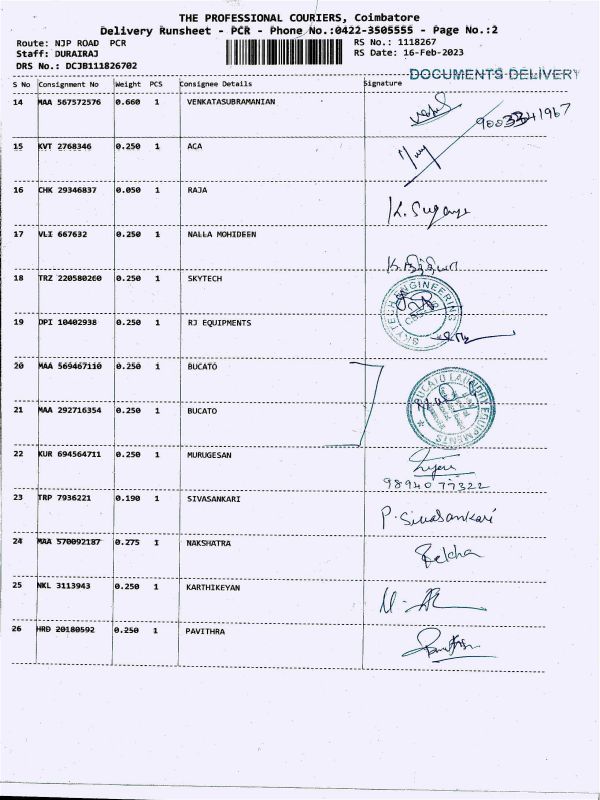 THE PROFESSIONAL COURIERS, Coimbatore
Delivery Runsheet - PCR - Phone No.:0422-3505555 - Page No.:2
Route: NJP ROAD PCR
RS No.: 1118267
Staff: DURAIRAJ
RS Date: 16-Feb-2023
DRS No.: DCJB111826702
DOCUMENTS DELIVERY
S No Consignment No Weight PCS Consignee Details Signature
14 MAA 567572576 0.660 1 VENKATASUBRAMANIAN
15 KVT 2768346 0.250 1 ACA
16 CHK 29346837 0.050 1 RAJA
K. Suganya
17 VLI 667632 0.250 1 NALLA MOHIDEEN
18 TRZ 220580260 0.250 1 SKYTECH
SKYTECH ENGINEERING
19 DPI 10402938 0.250 1 RJ EQUIPMENTS
20 MAA 569467110 0.250 1 BUCATO
BUCATO LAUNDRY EQUIPMENTS
21 MAA 292716354 0.250 1 BUCATO
22 KUR 694564711 0.250 1 MURUGESAN
98940 77322
23 TRP 7936221 0.190 1 SIVASANKARI
P. Sivasankari
24 MAA 570092187 0.275 1 NAKSHATRA
25 NKL 3113943 0.250 1 KARTHIKEYAN
26 HRD 20180592 0.250 1 PAVITHRA